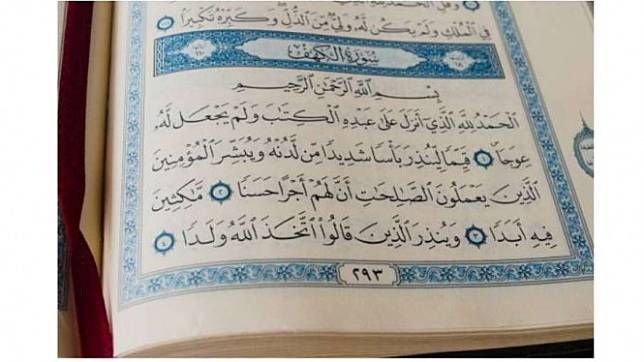 وَقُلِ ٱلْحَمْدُ لِلَّهِ
فِي ٱلْمُلْكِ وَلَمْ يَكُن لَّهُۥ وَلِيٌّ مِّنَ ٱلذُّلِّ وَكَبِّرْهُ تَكْبِيرًا ١١١
سُورَةُ الكَهْفِ
بِسْمِ ٱللَّهِ ٱلرَّحْمَٰنِ ٱلرَّحِيمِ
ٱلْحَمْدُ لِلَّهِ ٱلَّذِيٓ أَنزَلَ عَلَىٰ عَبْدِهِ ٱلْكِتَٰبَ وَلَمْ يَجْعَل لَّهُۥ
عِوَجَا ١ قَيِّمًا لِّيُنذِرَ بَأْسًا شَدِيدًا مِّن لَّدُنْهُ وَيُبَشِّرَ ٱلْمُؤْمِنِينَ
ٱلَّذِينَ يَعْمَلُونَ ٱلصَّٰلِحَٰتِ أَنَّ لَهُمْ أَجْرًا حَسَنًا ٢ مَّٰكِثِينَ
فِيهِ أَبَدًا ٣ وَيُنذِرَ ٱلَّذِينَ قَالُوا۟ ٱتَّخَذَ ٱللَّهُ وَلَدًا ٤
٢٩٣